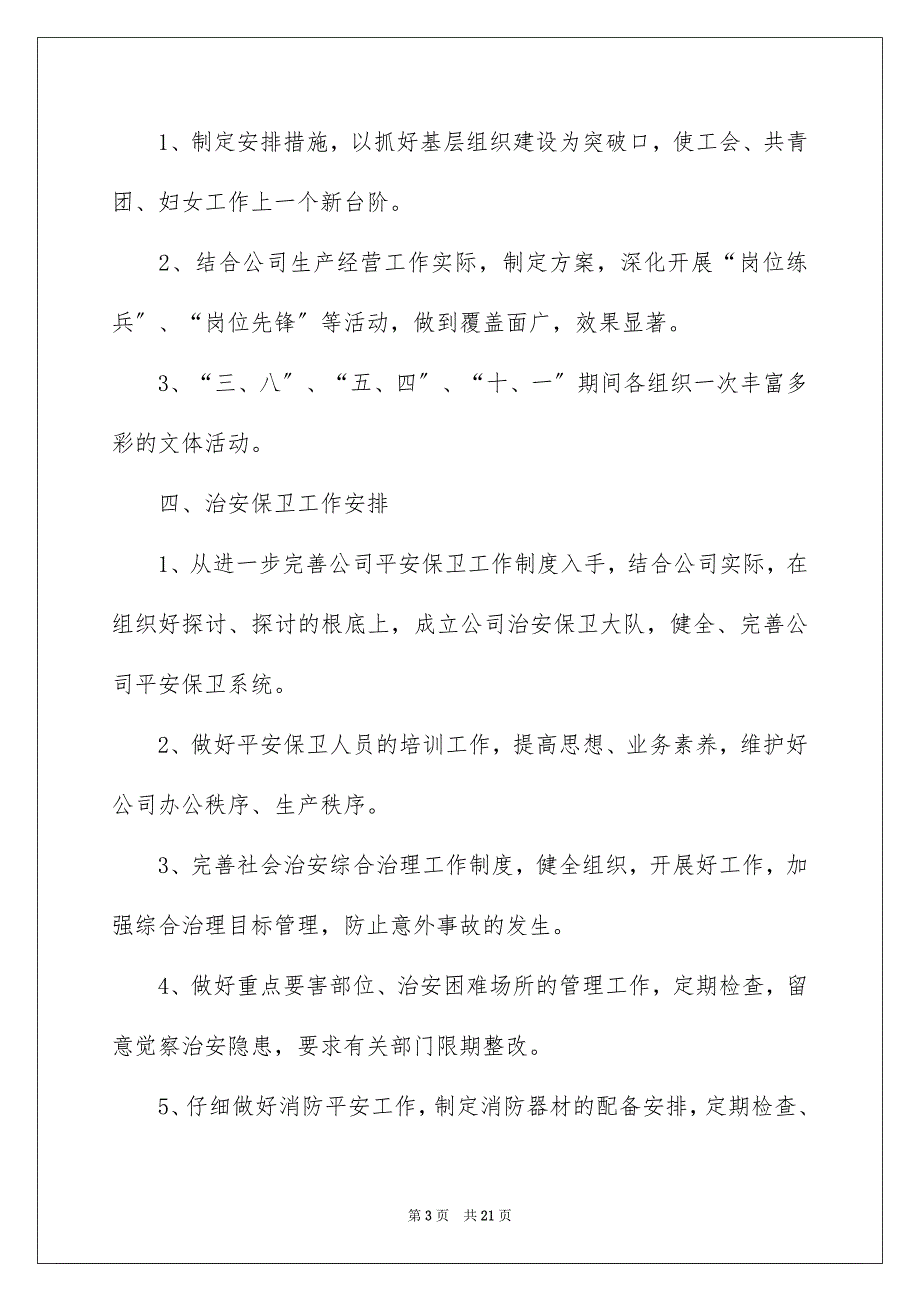 1、制定安排措施，以抓好基层组织建设为突破口，使工会、共青
团、妇女工作上一个新台阶。
2、结合公司生产经营工作实际，制定方案，深化开展“岗位练
兵〞、“岗位先锋〞等活动，做到覆盖面广，效果显著。
3、“三、八〞、“五、四〞、“十、一〞期间各组织一次丰富多
彩的文体活动。
四、治安保卫工作安排
1、从进一步完善公司平安保卫工作制度入手，结合公司实际，在
组织好探讨、探讨的根底上，成立公司治安保卫大队，健全、完善公
司平安保卫系统。
2、做好平安保卫人员的培训工作，提高思想、业务素养，维护好
公司办公秩序、生产秩序。
3、完善社会治安综合治理工作制度，健全组织，开展好工作，加
强综合治理目标管理，防止意外事故的发生。
4、做好重点要害部位、治安困难场所的管理工作，定期检查，留
意觉察治安隐患，要求有关部门限期整改。
5、仔细做好消防平安工作，制定消防器材的配备安排，定期检查、
第 3 页 共 21 页